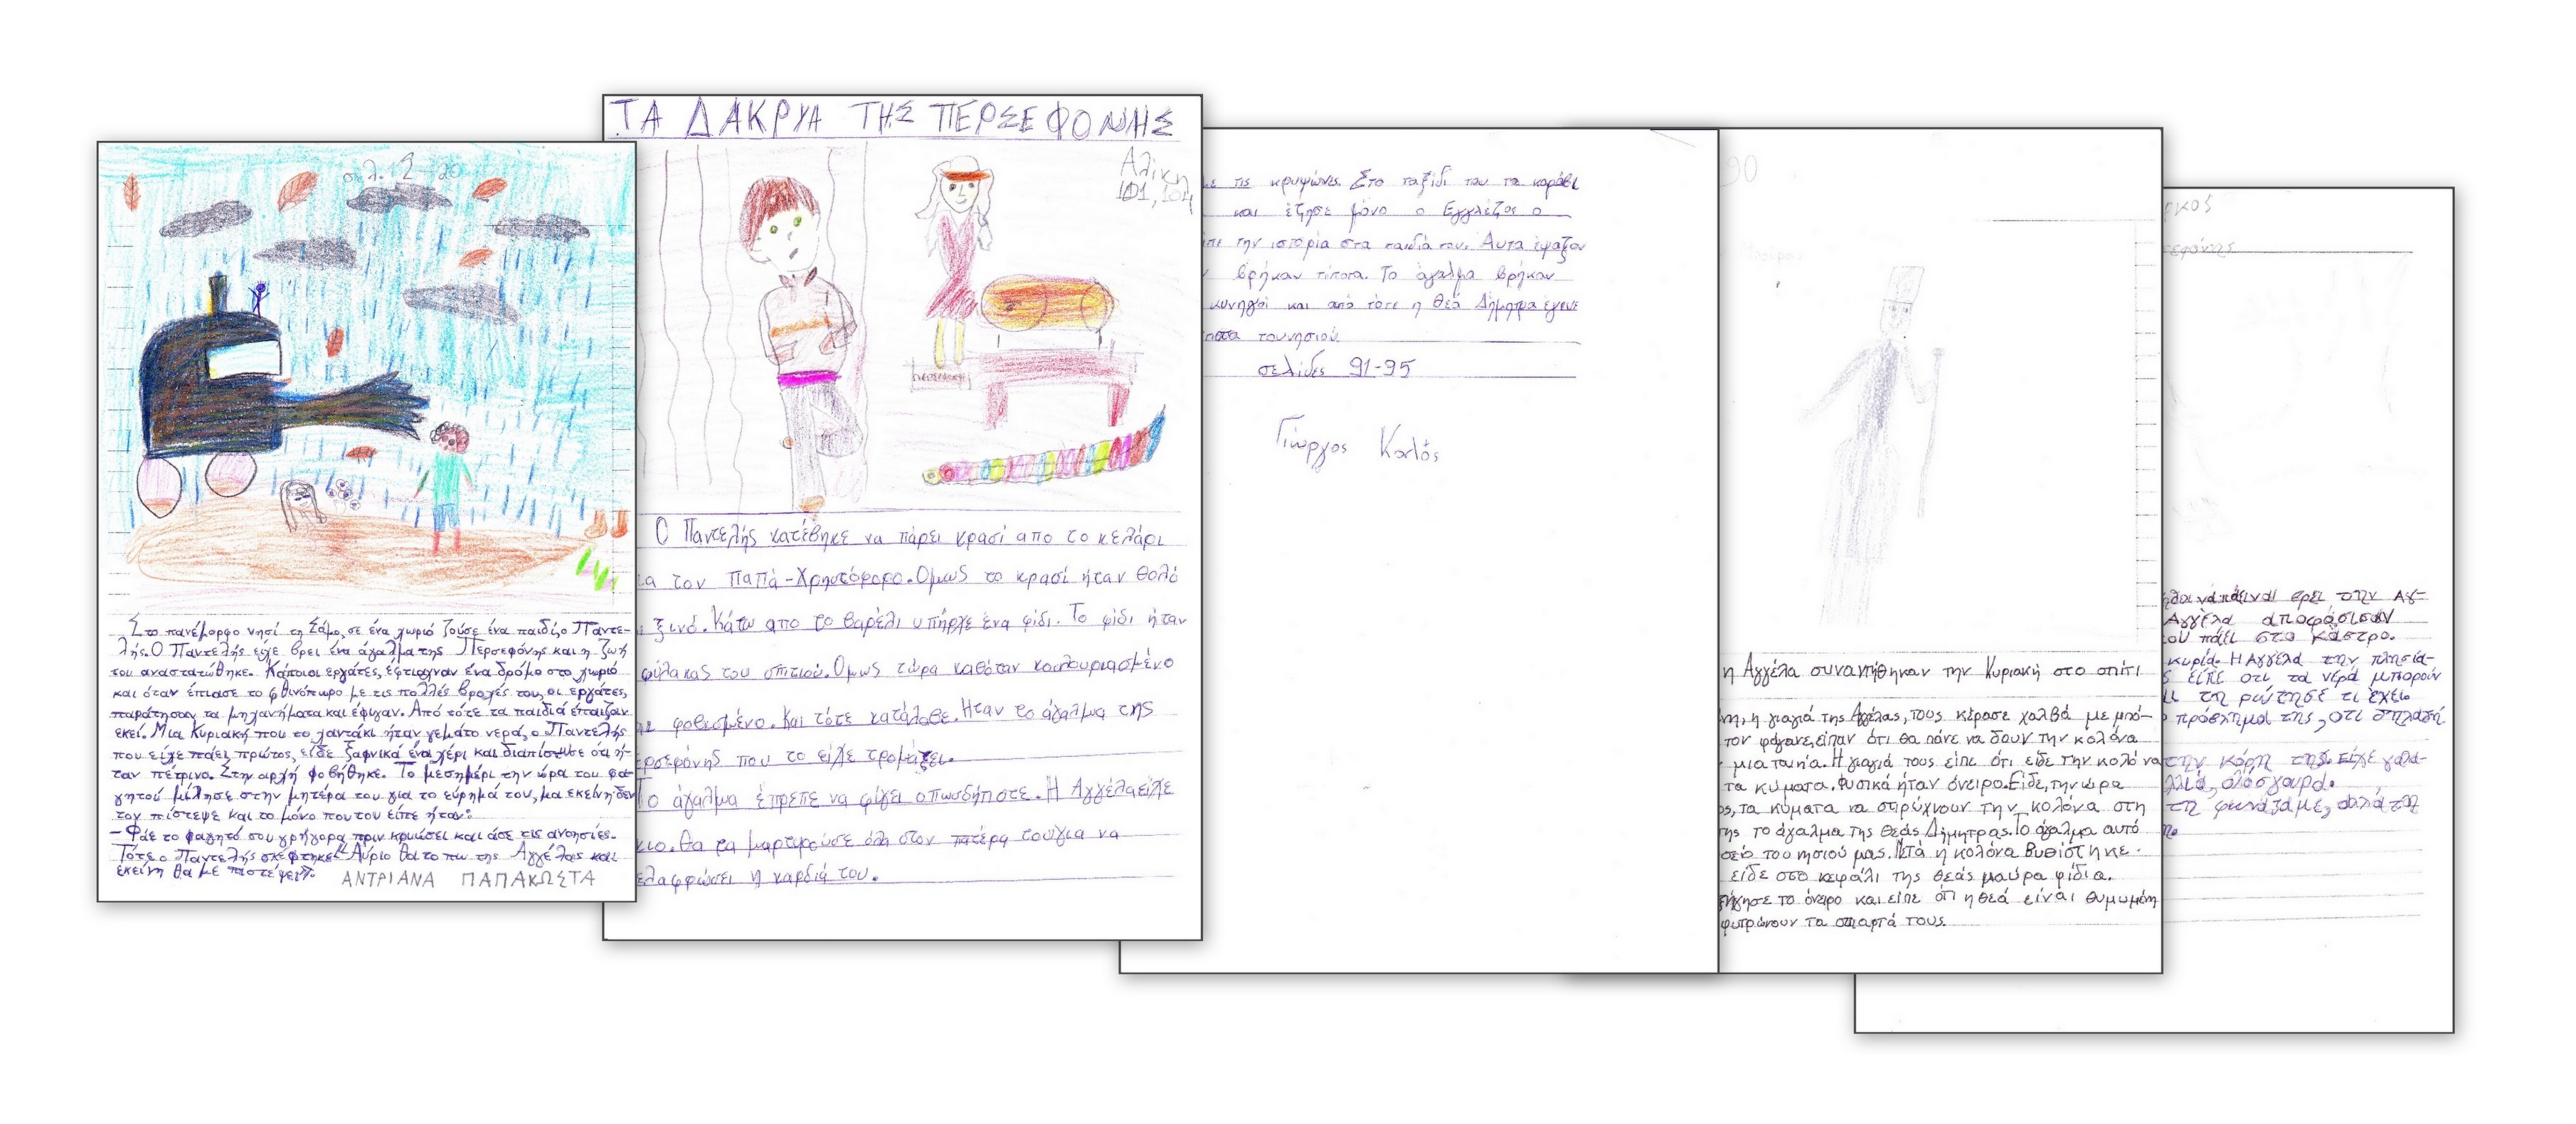 σελ. 2-20
Στο πανέμορφο νησί τη Σάμο, σε ένα χωριό ζούσε ένα παιδί, ο Παντε-
λής. Ο Παντελής είχε βρει ένα άγαλμα της Περσεφόνης και η ζωή
του αναστατώθηκε. Κάποιοι εργάτες, έφτιαχναν ένα δρόμο στο χωριό
και όταν έπιασε το φθινόπωρο με τις πολλές βροχές του, οι εργάτες,
παράτησαν τα μηχανήματα και έφυγαν. Από τότε τα παιδιά έπαιζαν
εκεί. Μια Κυριακή που το χαντάκι ήταν γεμάτο νερά, ο Παντελής
που είχε πάει πρώτος, είδε ξαφνικά ένα χέρι και διαπίστωσε ότι ή-
ταν πέτρινο. Στην αρχή φοβήθηκε. Το μεσημέρι την ώρα του φα-
γητού μίλησε στην μητέρα του για το εύρημά του, μα εκείνη δεν
τον πίστεψε και το μόνο που του είπε ήταν:
- Φάε το φαγητό σου γρήγορα πριν κρυώσει και άσε τις ανοησίες.
Τότε ο Παντελής σκέφτηκε "Αύριο θα το πω της Αγγέλας και
εκείνη θα με πιστέψει".
ΑΝΤΡΙΑΝΑ ΠΑΠΑΚΩΣΤΑ
ΤΑ ΔΑΚΡΥΑ ΤΗΣ ΠΕΡΣΕΦΟΝΗΣ
Αλίκη
101, 104
Ο Παντελής κατέβηκε να πάρει κρασί απο το κελάρι
α τον παπά-Χρηστόφορο. Ομως το κρασί ήταν θολό
ξινό. Κάτω απο το βαρέλι υπήρχε ένα φίδι. Το φίδι ήταν
φύλακας του σπιτιού. Ομως τώρα καθόταν κουλουριασμένο
με φοβισμένο. Και τότε κατάλαβε. Ηταν το άγαλμα της
ερσεφόνης που το είχε τρομάξει.
Το άγαλμα έπρεπε να φύγει οπωσδήποτε. Η Αγγέλα είχε
κιο. Θα τα μαρτυρούσε όλα στον πατέρα του για να
ελαφρώσει η καρδιά του.
ε τις κρυψώνες. Στο ταξίδι του το καράβι
και έζησε μόνο ο Εγγλέζος ο
πε την ιστορία στα παιδιά του. Αυτα έψαξαν
ν βρήκαν τίποτα. Το άγαλμα βρήκαν
κυνηγοί και από τότε η θεά Δήμητρα έγινε
του νησιού.
σελίδες 91-95
Γιώργος Καλός
90
η Αγγέλα συναντήθηκαν την Κυριακή στο σπίτι
νη, η γιαγιά της Αγγέλας, τους κέρασε χαλβά με μπό-
τον φάγανε, είπαν ότι θα πάνε να δουν την κολόνα
μια ταινία. Η γιαγιά τους είπε ότι είδε την κολόνα
τα κύματα. Φυσικά ήταν όνειρο. Είδε, την ώρα
ος, τα κύματα να σπρώχνουν την κολόνα στη
της το άγαλμα της θεάς Δήμητρας. Το άγαλμα αυτό
σείο του νησιού μας. Μετά η κολόνα βυθίστηκε.
είδε στο κεφάλι της θεάς μαύρα φίδια.
ξήγησε το όνειρο και είπε ότι η θεά είναι θυμωμένη
φυτρώνουν τα σπαρτά τους.
ρκος
σεφόνης
ερει στην Αγ-
Αγγέλα αποφάσισαν
ου πάει στο κάστρο.
κυρία. Η Αγγέλα την πλησία-
ς είπε οτι τα νερά μπορούν
τη ρώτησε τι έχει
πρόβλημα της, οτι
την κόρη της. Είχε γαλα-
λλιά, ολόσγουρα.
τη φωνάζαμε, αλλά τη